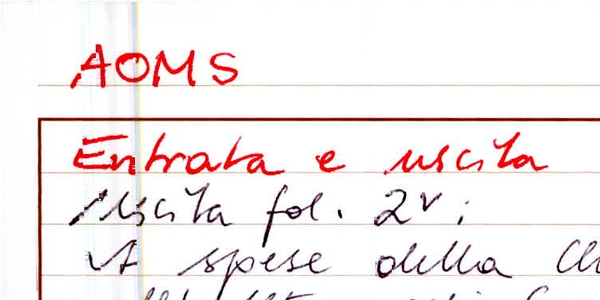 AOMS
Entrata e uscita
Uscita fol. 2v;
A spese della